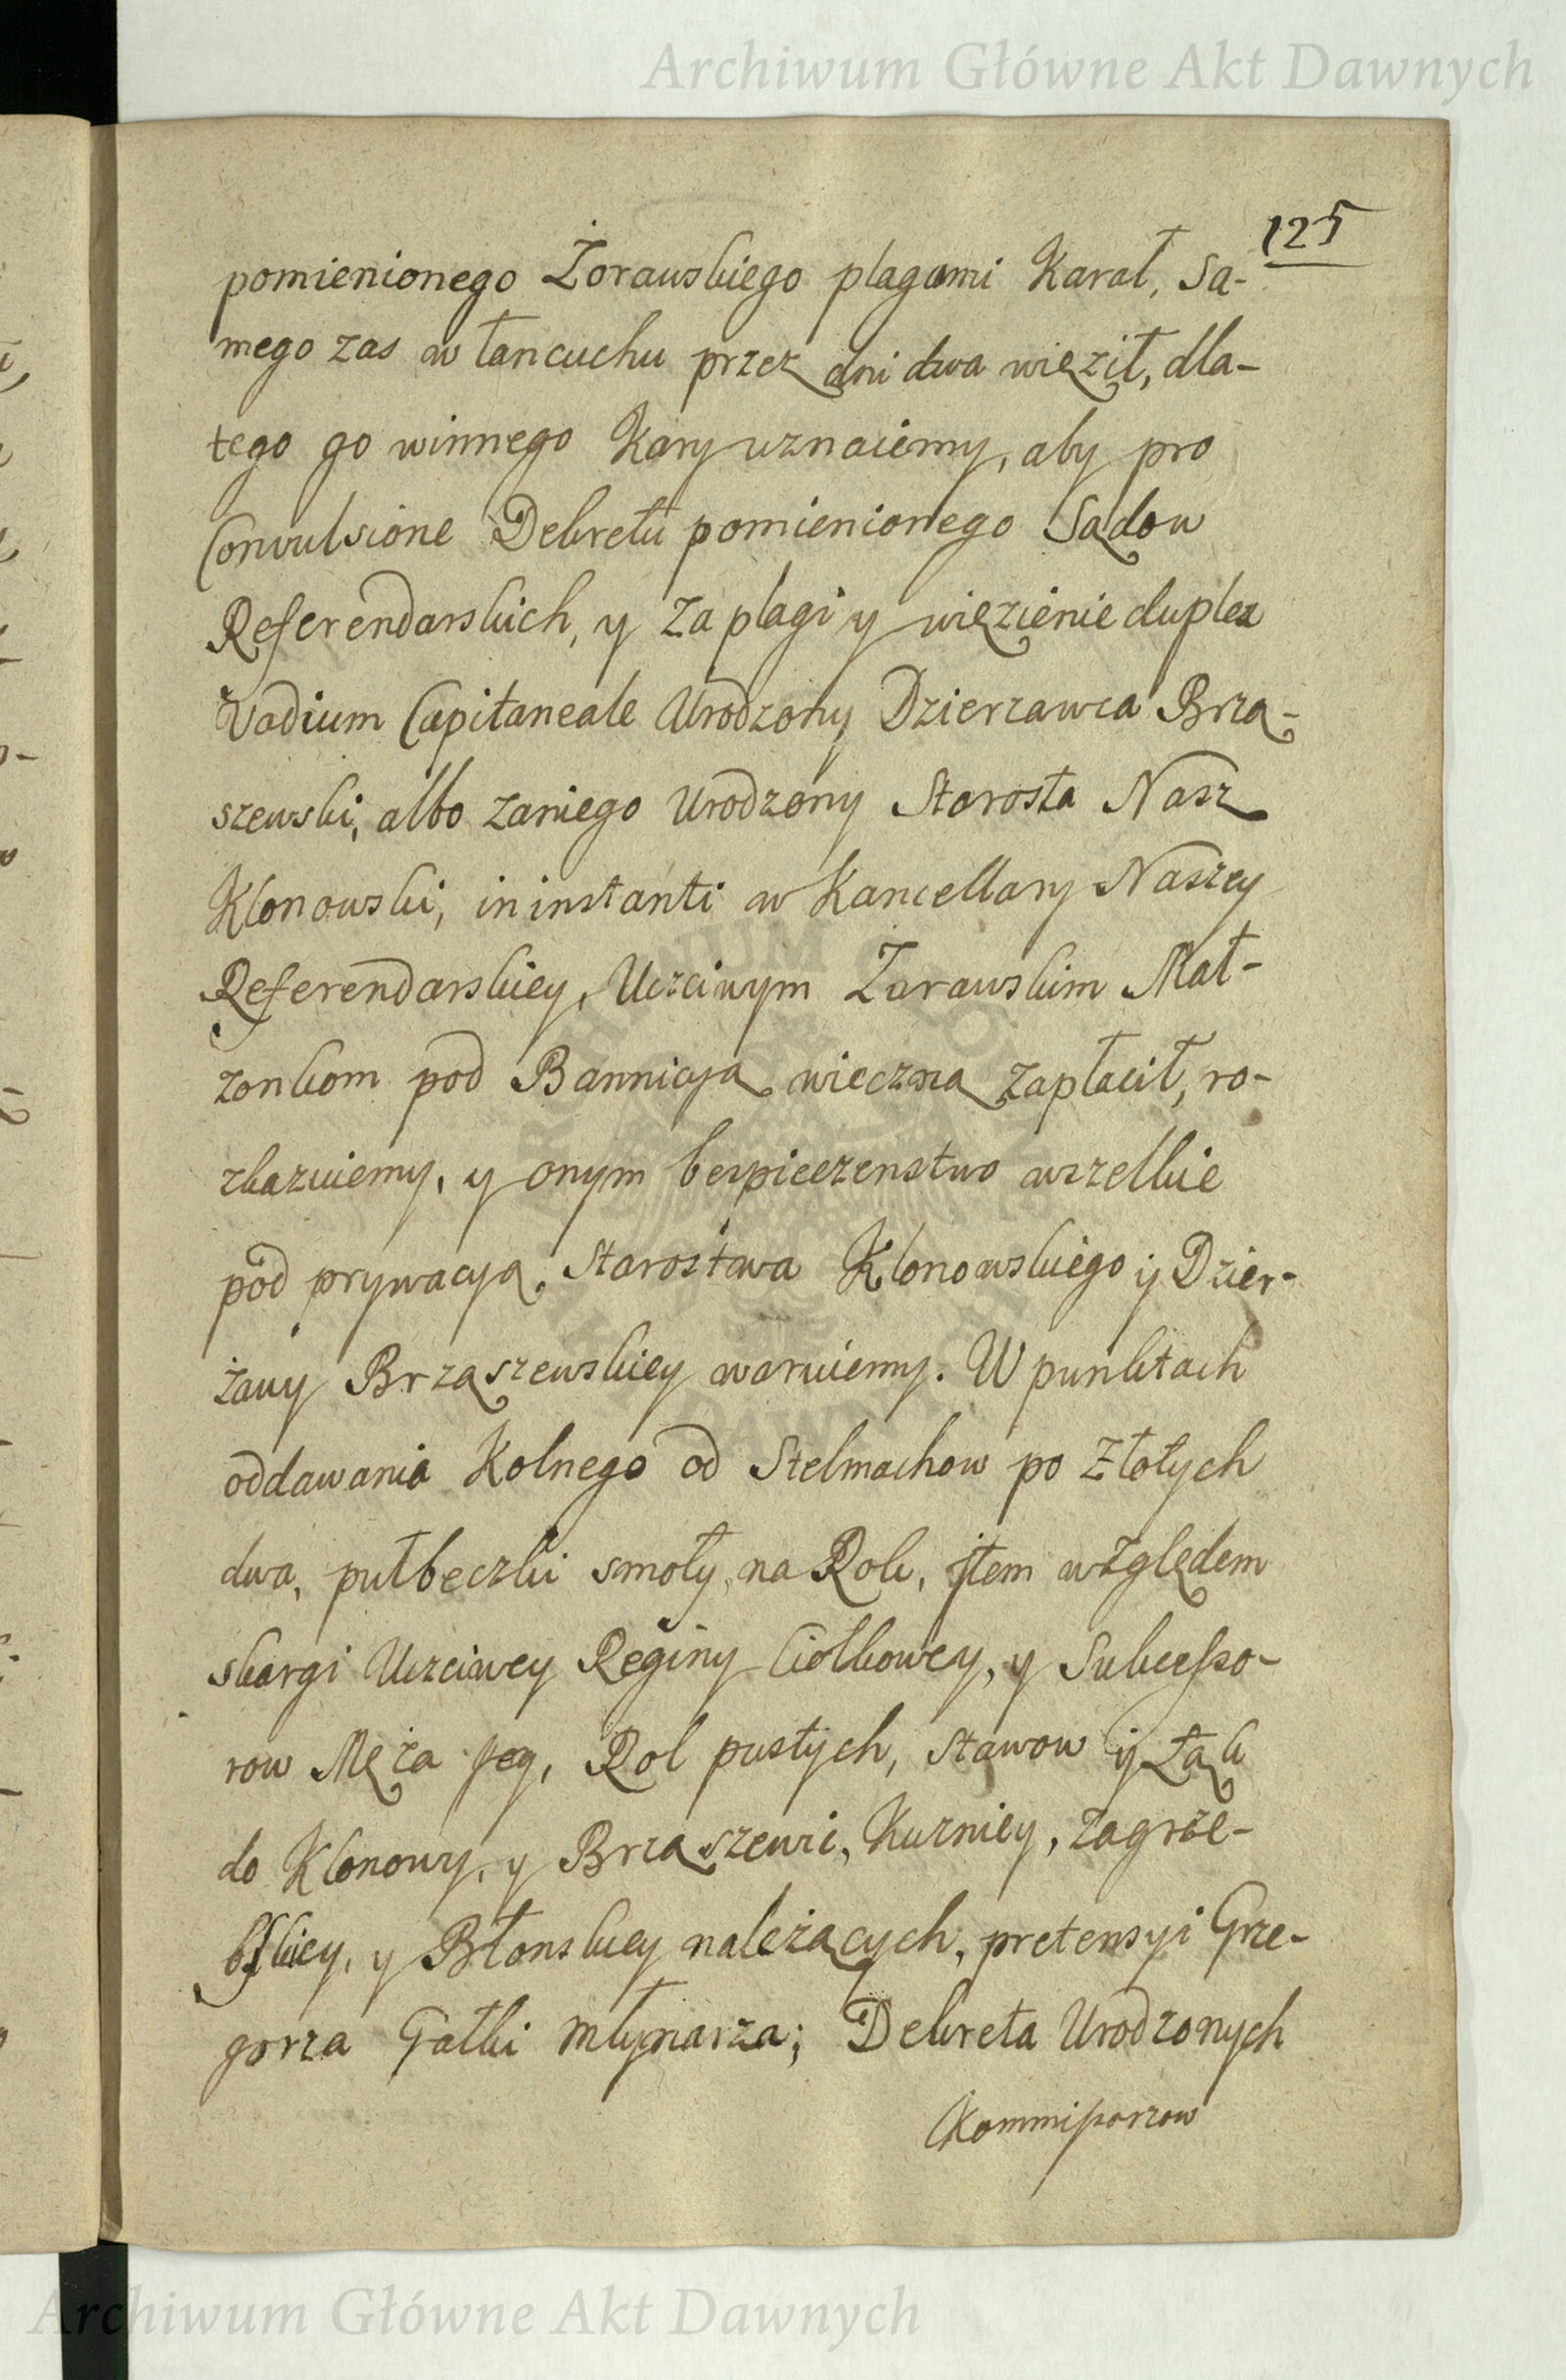 Archiwum Główne Akt Dawnych
125
pomienionego Żorawskiego plagami Karał, Sa-
mego zas w łancuchu przez dni dwa więził, dla-
tego go winnego Kary uznaiemy, aby pro
Convulsione Dekretu pomienionego Sądow
Referendarskich, y za plagi y więzienie duplex
Vadium Capitaneale Urodzony Dzierzawca Brzą-
szewski, albo zaniego Urodzony Starosta Nasz
Klonowski, in instanti w Kancellary Naszey
Referendarskiey, Uczciwym Zorawskim Mał-
zonkom pod Bannicyą wieczną zapłacił, ro-
zkazuiemy, y onym bespieczenstwo wszelkie
pod prywacyą Starostwa Klonowskiego y Dzier-
żawy Brząszewskiey waruiemy. W punktach
oddawania Kolnego od Stelmachow po Złotych
dwa, pułbeczki smoły na Rok, jtem względem
skargi Uczciwey Reginy Ciołkowey, y Sukcesso-
row Męża Jey, Rol pustych, Stawow y Łąk
do Klonowy, y Brząszewi, Kuzniey, Zagrze-
bskiey, y Błonskiey należących, pretensyi Grze-
gorza Gałki młynarza; Dekreta Urodzonych
Kommissarzow
Archiwum Główne Akt Dawnych